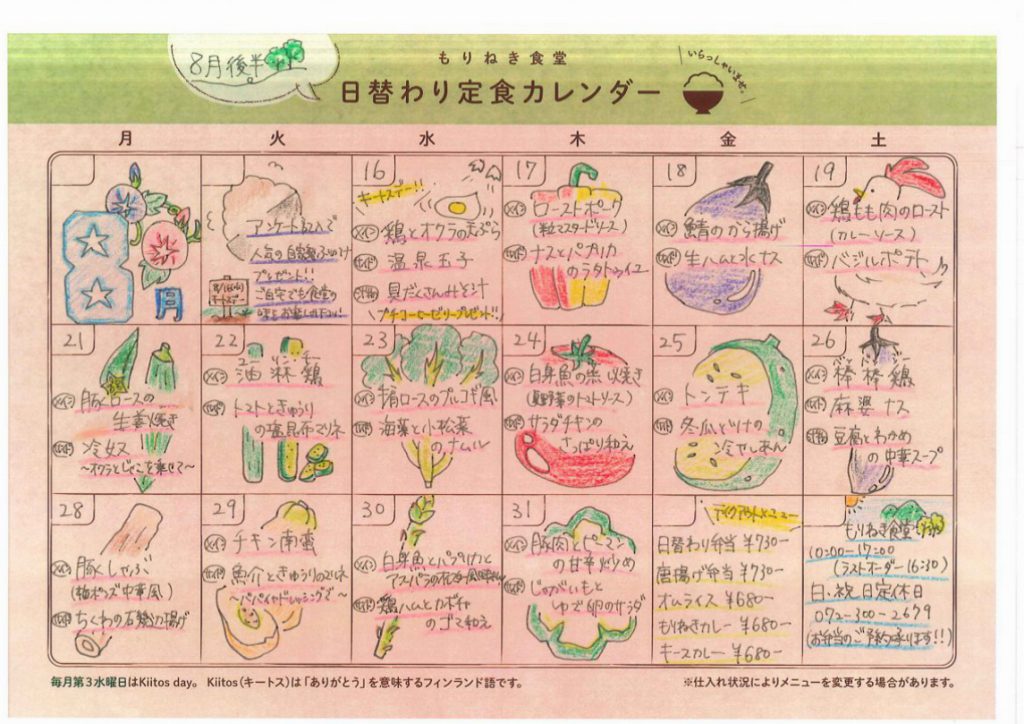 8月後半
もりねき食堂
日替わり定食カレンダー
いらっしゃいませ。
月 火 水 木 金 土
8
月
アンケート記入で
人気の自家製ふりかけ
プレゼント!!
ご自宅でも食堂の
味をお楽しみ下さい!
8/16(水)
キートスデー
16
キートスデー!!
メイン 鶏とオクラの天ぷら
サイド 温泉玉子
汁物 具だくさんみそ汁
プチコーヒーゼリープレゼント!!
17
メイン ローストポーク
(粒マスタードソース)
サイド ナスとパプリカ
のラタトゥイユ
18
メイン 鯖のから揚げ
サイド 生ハムと水ナス
19
メイン 鶏もも肉のロースト
(カレーソース)
サイド バジルポテト
21
メイン 豚ロースの
生姜焼き
サイド 冷奴
~オクラとじゃこを乗せて~
22
ユー リン チー
メイン 油淋鶏
サイド トマトときゅうり
の塩昆布マリネ
23
メイン 豚ロースのプルコギ風
サイド 海藻と小松菜
のナムル
24
メイン 白身魚の蒸し焼き
(夏野菜のトマトソース)
サイド サラダチキンの
さっぱり和え
25
メイン トンテキ
サイド 冬瓜とツナの
冷やしあん
26
メイン 棒棒鶏
サイド 麻婆ナス
汁物 豆腐とわかめ
の中華スープ
28
メイン 豚しゃぶ
(梅ポンズ中華風)
サイド ちくわの石垣揚げ
29
メイン チキン南蛮
サイド 魚介ときゅうりのマリネ
~パパイヤドレッシングで~
30
メイン 白身魚とパプリカと
アスパラの
サイド 鶏ハムとカボチャ
のゴマ和え
31
メイン 豚肉とピーマン
の甘辛炒め
サイド じゃがいもと
ゆで卵のサラダ
テイクアウトメニュー
日替わり弁当 ¥730-
唐揚げ弁当 ¥730-
オムライス ¥680-
もりねきカレー ¥680-
キーマカレー ¥680-
もりねき食堂
10:00-17:00
(ラストオーダー16:30)
日、祝日定休日
072-300-2679
(お弁当のご予約承ります!!)
毎月第3水曜日はKiitos day。 Kiitos(キートス)は「ありがとう」を意味するフィンランド語です。
※仕入れ状況によりメニューを変更する場合があります。